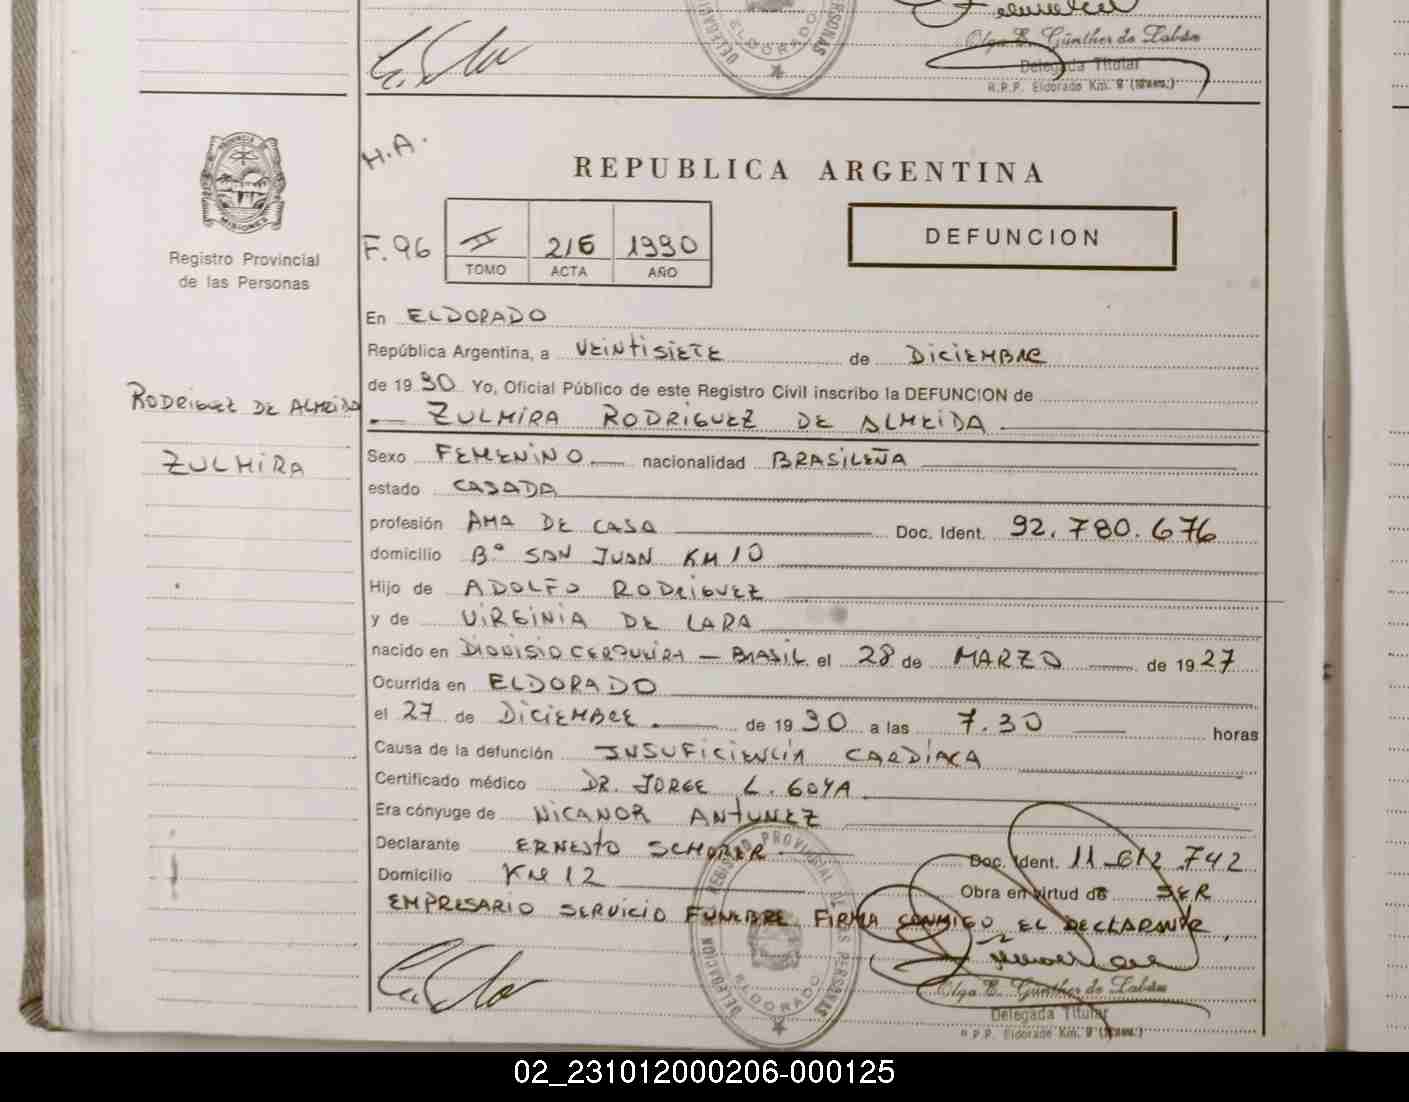 DELEGACION
ELDORADO
PERSONAS
Olga E. Günther de Labán
Delegada Titular
R.P.P. Eldorado Km. 9 (Mnes.)
H.A.
PROVINCIA DE
MISIONES
REPUBLICA ARGENTINA
F. 96
II 216 1990
TOMO ACTA AÑO
DEFUNCION
Registro Provincial
de las Personas
En ELDORADO
República Argentina, a VEINTISIETE de DICIEMBRE
de 19 90 Yo, Oficial Público de este Registro Civil inscribo la DEFUNCION de
RODRIGUEZ DE ALMEIDA
ZULMIRA RODRIGUEZ DE ALMEIDA
ZULMIRA
Sexo FEMENINO nacionalidad BRASILEÑA
estado CASADA
profesión AMA DE CASA Doc. Ident. 92.780.676
domicilio Bº SAN JUAN KM 10
Hijo de ADOLFO RODRIGUEZ
y de VIRGINIA DE LARA
nacido en DIONISIO CERQUEIRA - BRASIL el 28 de MARZO de 19 27
Ocurrida en ELDORADO
el 27 de DICIEMBRE de 19 90 a las 7.30 horas
Causa de la defunción INSUFICIENCIA CARDÍACA
Certificado médico DR. JORGE L. GOYA
Era cónyuge de NICANOR ANTUNEZ
Declarante ERNESTO SCHORER Doc. Ident. 11.612.742
Domicilio KM 12 Obra en virtud de SER
EMPRESARIO SERVICIO FUNEBRE. FIRMA CONMIGO EL DECLARANTE.
DELEGACION REGISTRO PROVINCIAL DE LAS PERSONAS
ELDORADO
Olga E. Günther de Labán
Delegada Titular
R.P.P. Eldorado Km. 9 (Mnes.)
02_231012000206-000125